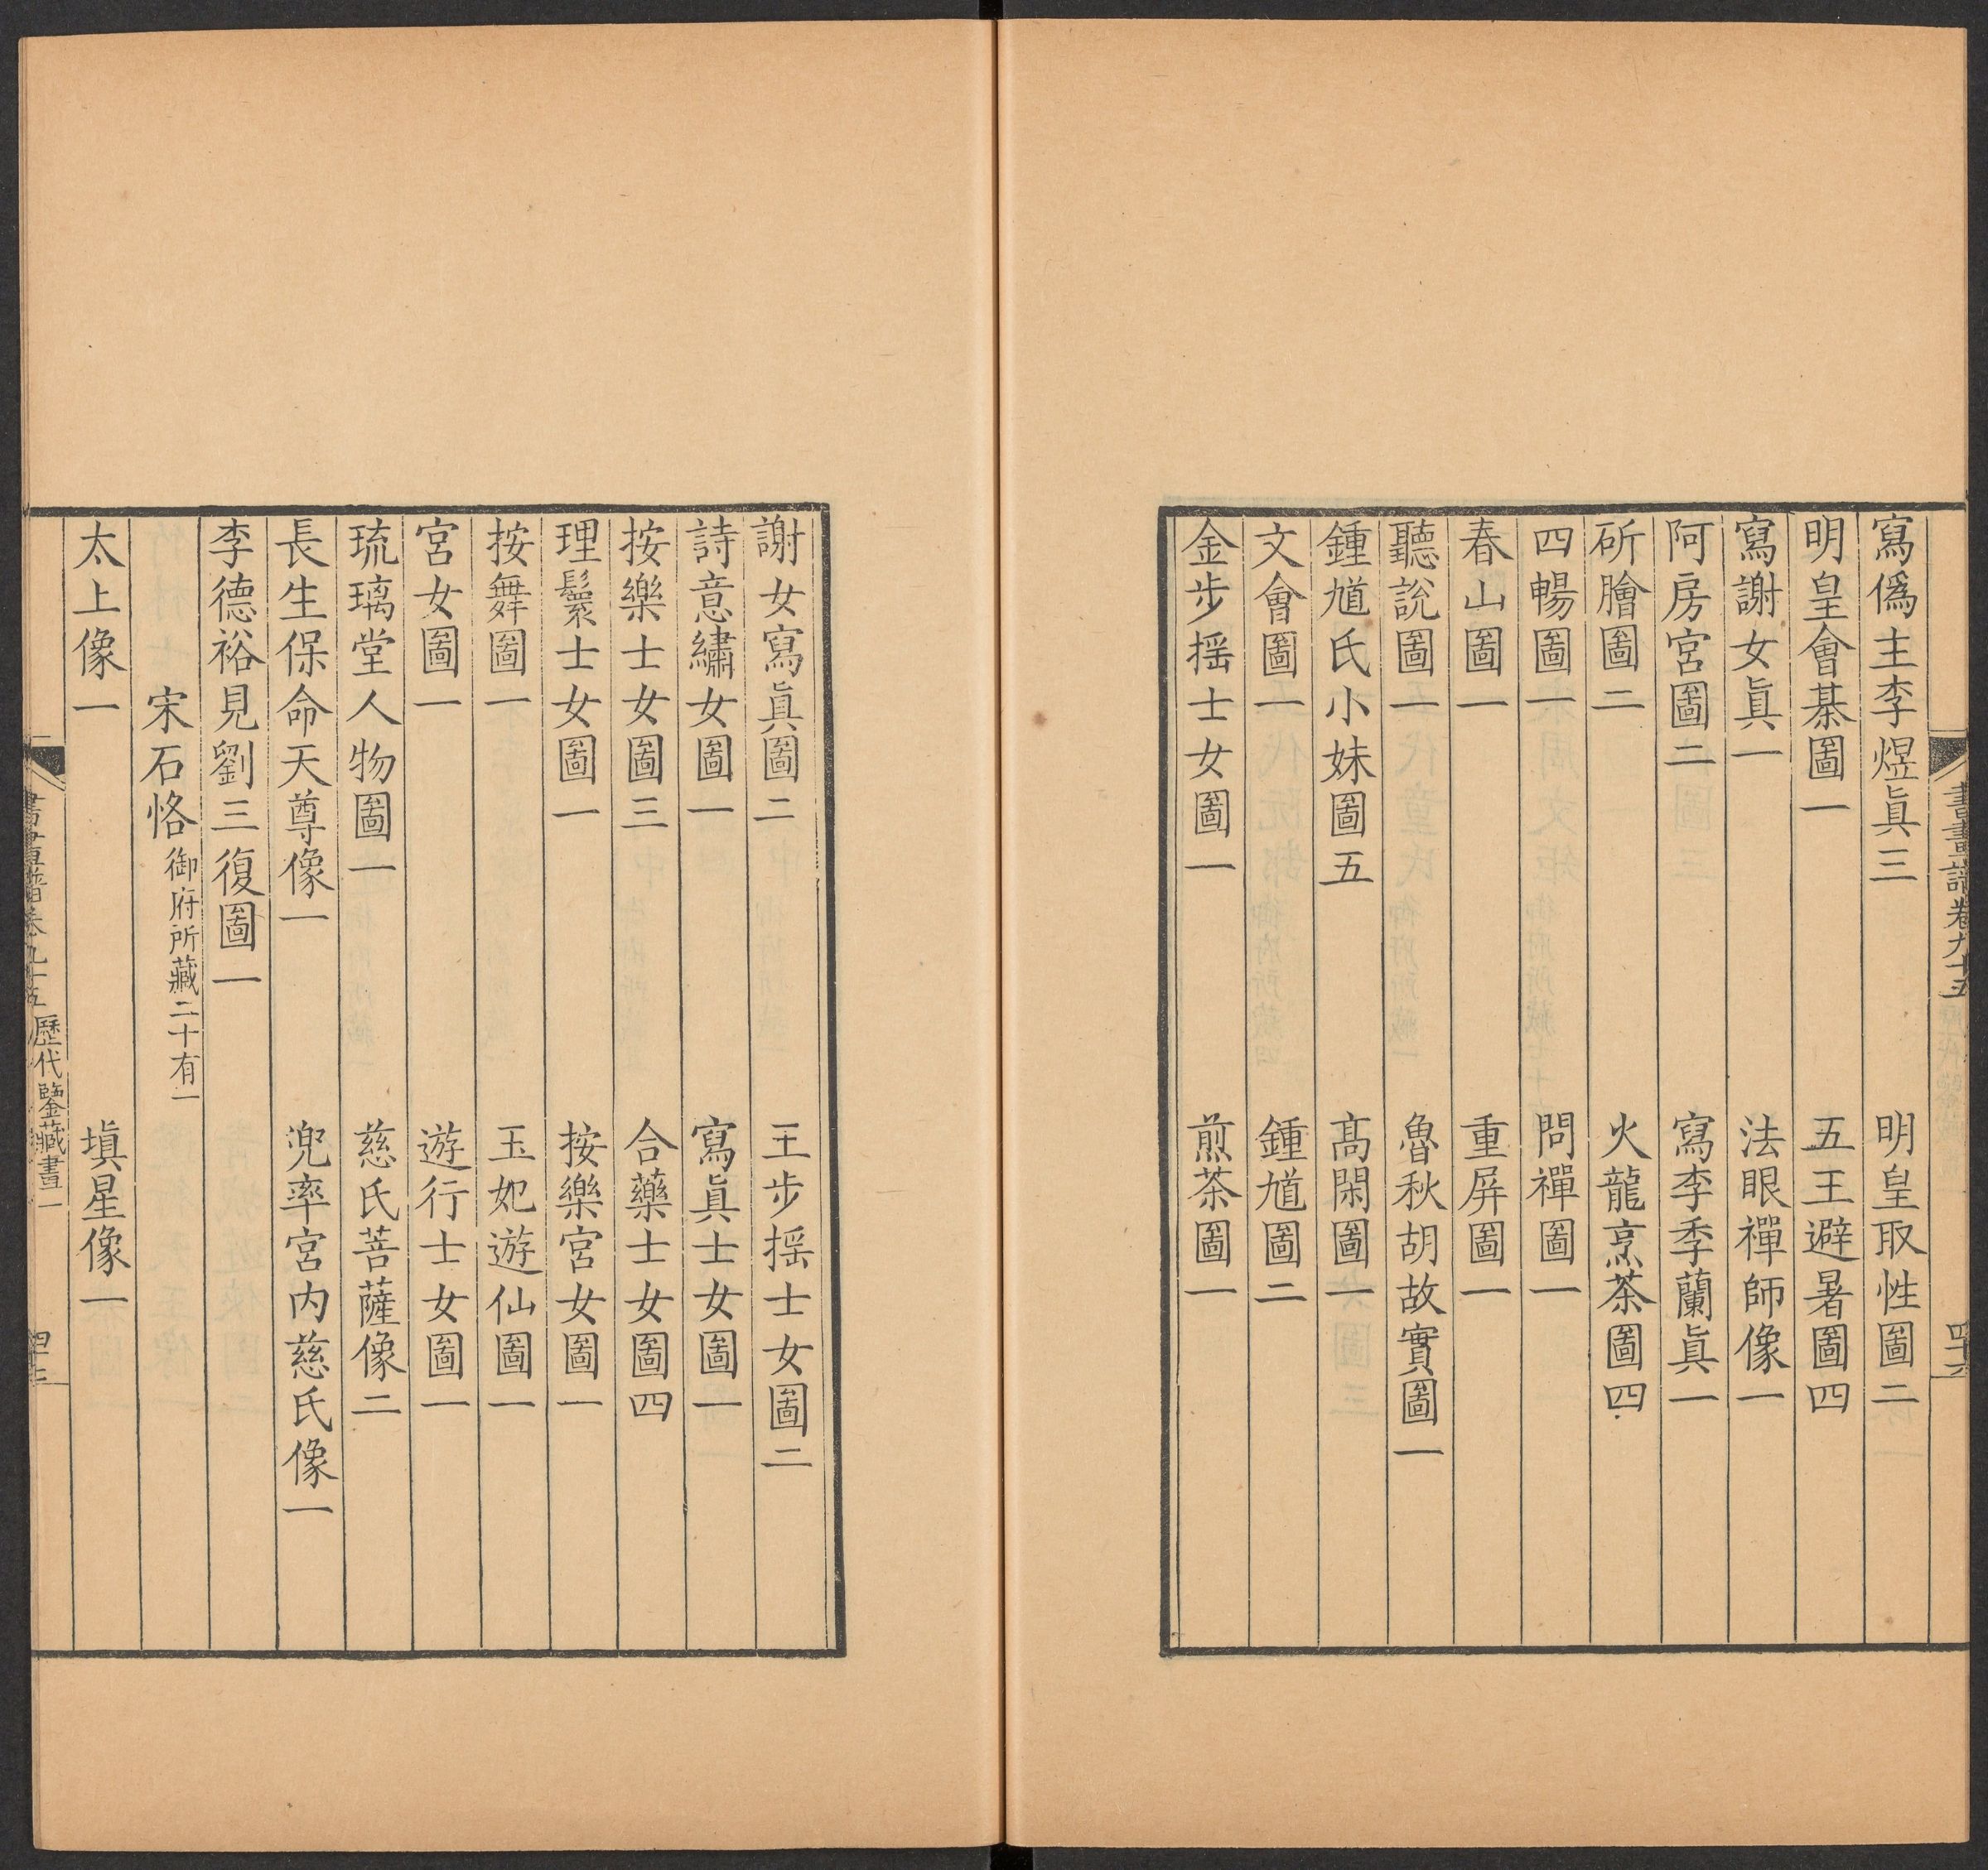 寫僞主李煜眞三　明皇取性圖二
明皇會棊圖一　五王避暑圖四
寫謝女眞一　法眼禪師像一
阿房宮圖二　寫李季蘭眞一
斫膾圖二　火龍烹茶圖四
四暢圖一　問禪圖一
春山圖一　重屏圖一
聽説圖一　魯秋胡故實圖一
鍾馗氏小妹圖五　髙閑圖一
文會圖一　鍾馗圖二
金步摇士女圖一　煎茶圖一
書畫譜卷九十五　四十六
謝女寫眞圖二　王步摇士女圖二
詩意繡女圖一　寫眞士女圖一
按樂士女圖三　合藥士女圖四
理鬟士女圖一　按樂宮女圖一
按舞圖一　玉妃遊仙圖一
宮女圖一　遊行士女圖一
琉璃堂人物圖一　慈氏菩薩像二
長生保命天尊像一　兜率宮内慈氏像一
李德裕見劉三復圖一
宋石恪御府所藏二十有一
太上像一　塡星像一
書畫譜卷九十五　歷代鑒藏畫一